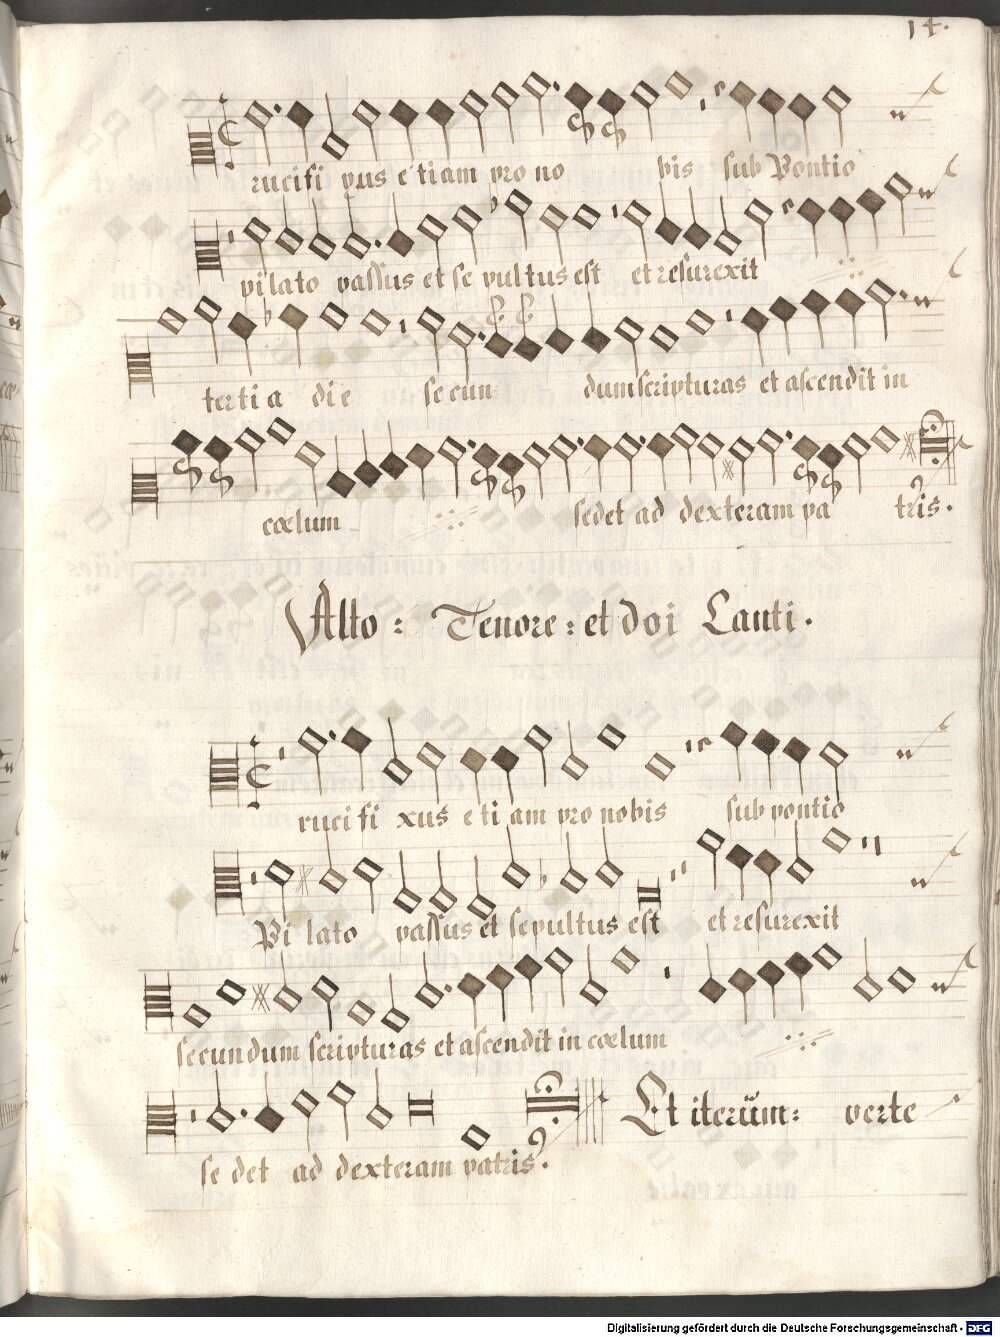 14.
rucifi xus etiam pro no bis sub Pontio
pilato passus et se pultus est et resurexit
tertia die secun dum scripturas et ascendit in
cœlum sedet ad dexteram pa tris.
Alto: Tenore: et doi Canti.
rucifi xus etiam pro nobis sub pontio
Pi lato passus et sepultus est et resurexit
secundum scripturas et ascendit in cœlum
se det ad dexteram patris.
Et iterūm: verte
Digitalisierung gefördert durch die Deutsche Forschungsgemeinschaft - DFG